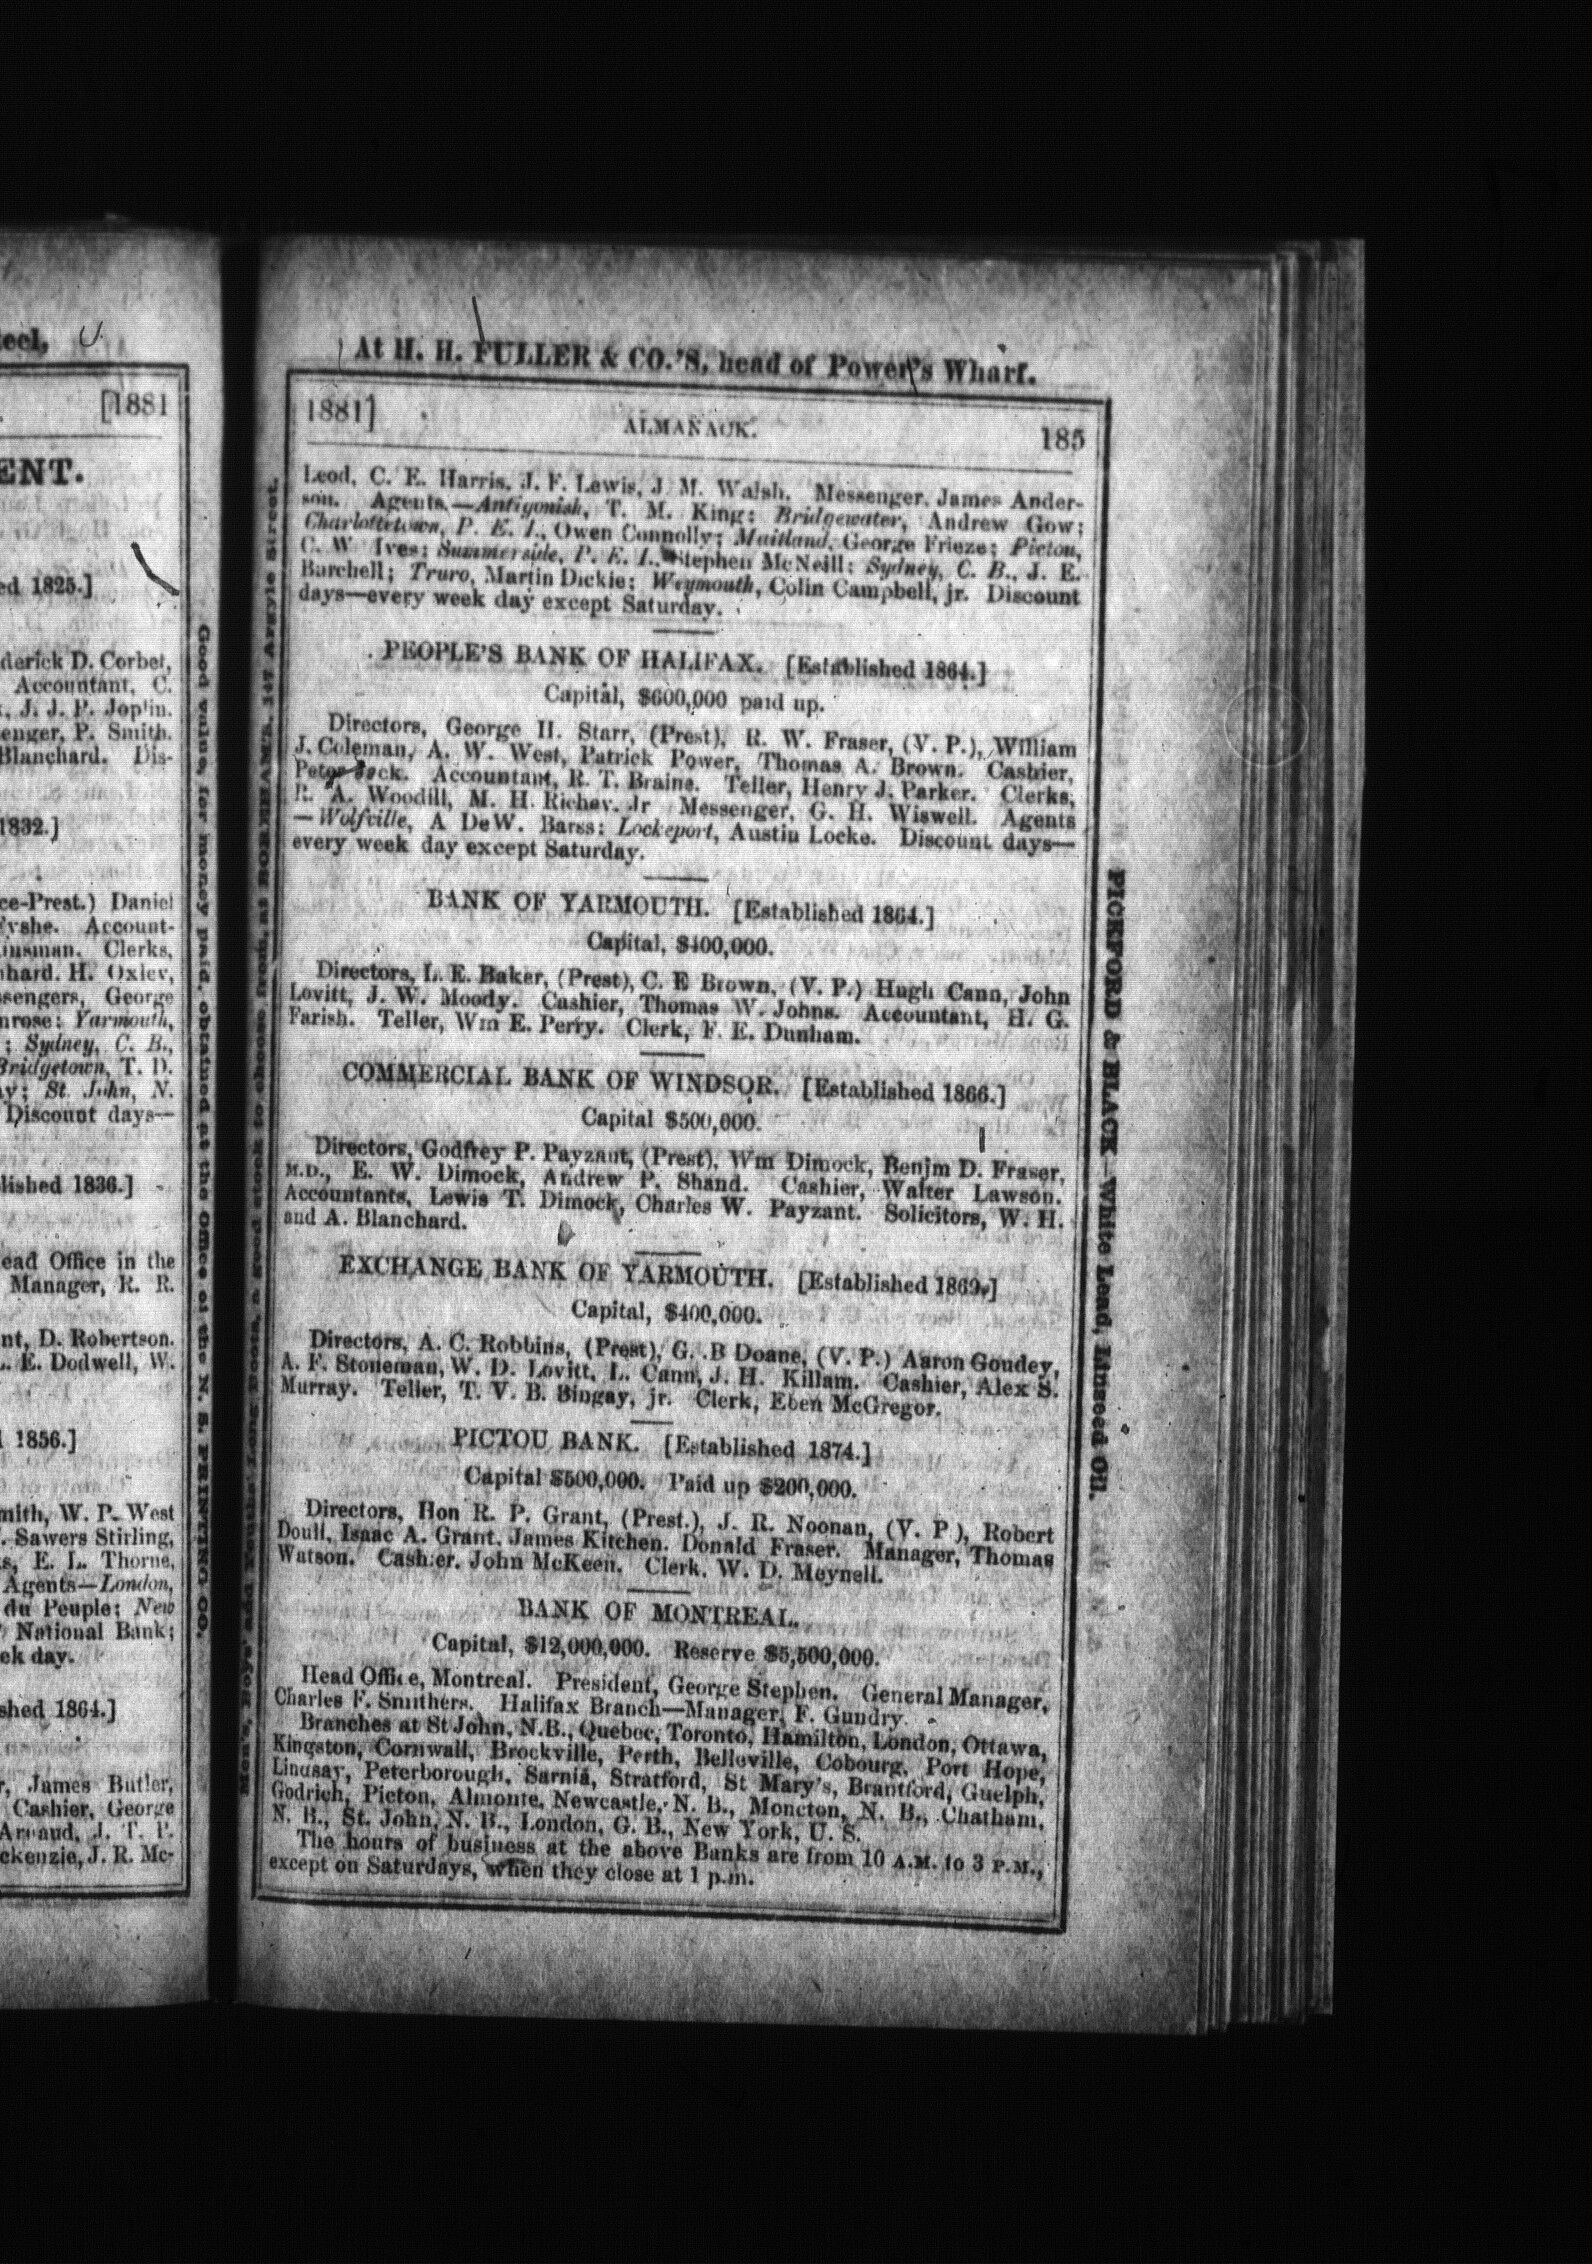 teel,
[1881
ENT.
ed 1825.]
derick D. Corbet,
Accountant, C.
J. J. P. Joplin.
enger, P. Smith.
Blanchard. Dis-
1832.]
ce-Prest.) Daniel
Fyshe. Account-
insman. Clerks,
nhard. H. Oxley,
ssengers, George
nrose; Yarmouth,
; Sydney, C. B.,
Bridgetown, T. D.
ay; St. John, N.
Discount days—
lished 1836.]
ead Office in the
Manager, R. R.
nt, D. Robertson.
L. E. Dodwell, W.
1856.]
mith, W. P. West
Sawers Stirling,
s, E. L. Thorne,
Agents—London,
du Peuple; New
National Bank;
ek day.
shed 1864.]
r, James Butler,
Cashier, George
Arnaud, J. T. P.
ckenzie, J. R. Mc-
Good value, for money paid, obtained at the Office of the N. S. PRINTING CO.
Men's, Boys' and Youths' Long Boots, a good stock to choose from, at BOREHAM'S, 147 Argyle Street.
At H. H. FULLER & CO.'S, head of Power's Wharf.
1881] ALMANACK. 185
Leod, C. E. Harris, J. F. Lewis, J. M. Walsh. Messenger, James Ander-
son. Agents,—Antigonish, T. M. King; Bridgewater, Andrew Gow;
Charlottetown, P. E. I., Owen Connolly; Maitland, George Frieze; Pictou,
C. W. Ives; Summerside, P. E. I., Stephen McNeill; Sydney, C. B., J. E.
Burchell; Truro, Martin Dickie; Weymouth, Colin Campbell, jr. Discount
days—every week day except Saturday.
PEOPLE'S BANK OF HALIFAX. [Established 1864.]
Capital, $600,000 paid up.
Directors, George H. Starr, (Prest), R. W. Fraser, (V. P.), William
J. Coleman, A. W. West, Patrick Power, Thomas A. Brown. Cashier,
Peter Jack. Accountant, R. T. Braine. Teller, Henry J. Parker. Clerks,
R. A. Woodill, M. H. Richey, Jr Messenger, G. H. Wiswell. Agents
—Wolfville, A DeW. Barss; Lockeport, Austin Locke. Discount days—
every week day except Saturday.
BANK OF YARMOUTH. [Established 1864.]
Capital, $400,000.
Directors, L. E. Baker, (Prest), C. E Brown, (V. P.) Hugh Cann, John
Lovitt, J. W. Moody. Cashier, Thomas W. Johns. Accountant, H. G.
Farish. Teller, Wm E. Perry. Clerk, F. E. Dunham.
COMMERCIAL BANK OF WINDSOR. [Established 1866.]
Capital $500,000.
Directors, Godfrey P. Payzant, (Prest), Wm Dimock, Benjm D. Fraser,
M.D., E. W. Dimock, Andrew P. Shand. Cashier, Walter Lawson.
Accountants, Lewis T. Dimock, Charles W. Payzant. Solicitors, W. H.
and A. Blanchard.
EXCHANGE BANK OF YARMOUTH. [Established 1869.]
Capital, $400,000.
Directors, A. C. Robbins, (Prest), G. B Doane, (V. P.) Aaron Goudey,
A. F. Stoneman, W. D. Lovitt, L. Cann, J. H. Killam. Cashier, Alex S.
Murray. Teller, T. V. B. Bingay, jr. Clerk, Eben McGregor.
PICTOU BANK. [Established 1874.]
Capital $500,000. Paid up $200,000.
Directors, Hon R. P. Grant, (Prest.), J. R. Noonan, (V. P), Robert
Doull, Isaac A. Grant, James Kitchen, Donald Fraser. Manager, Thomas
Watson. Cashier, John McKeen. Clerk, W. D. Meynell.
BANK OF MONTREAL.
Capital, $12,000,000. Reserve $5,500,000.
Head Office, Montreal. President, George Stephen. General Manager,
Charles F. Smithers. Halifax Branch—Manager, F. Gundry.
Branches at St John, N.B., Quebec, Toronto, Hamilton, London, Ottawa,
Kingston, Cornwall, Brockville, Perth, Belleville, Cobourg, Port Hope,
Lindsay, Peterborough, Sarnia, Stratford, St Mary's, Brantford, Guelph,
Godrich, Picton, Almonte, Newcastle, N. B., Moncton, N. B., Chatham,
N. B., St. John, N. B., London, G. B., New York, U. S.
The hours of business at the above Banks are from 10 A.M. to 3 P.M.,
except on Saturdays, when they close at 1 p.m.
PICKFORD & BLACK—White Lead, Linseed Oil.